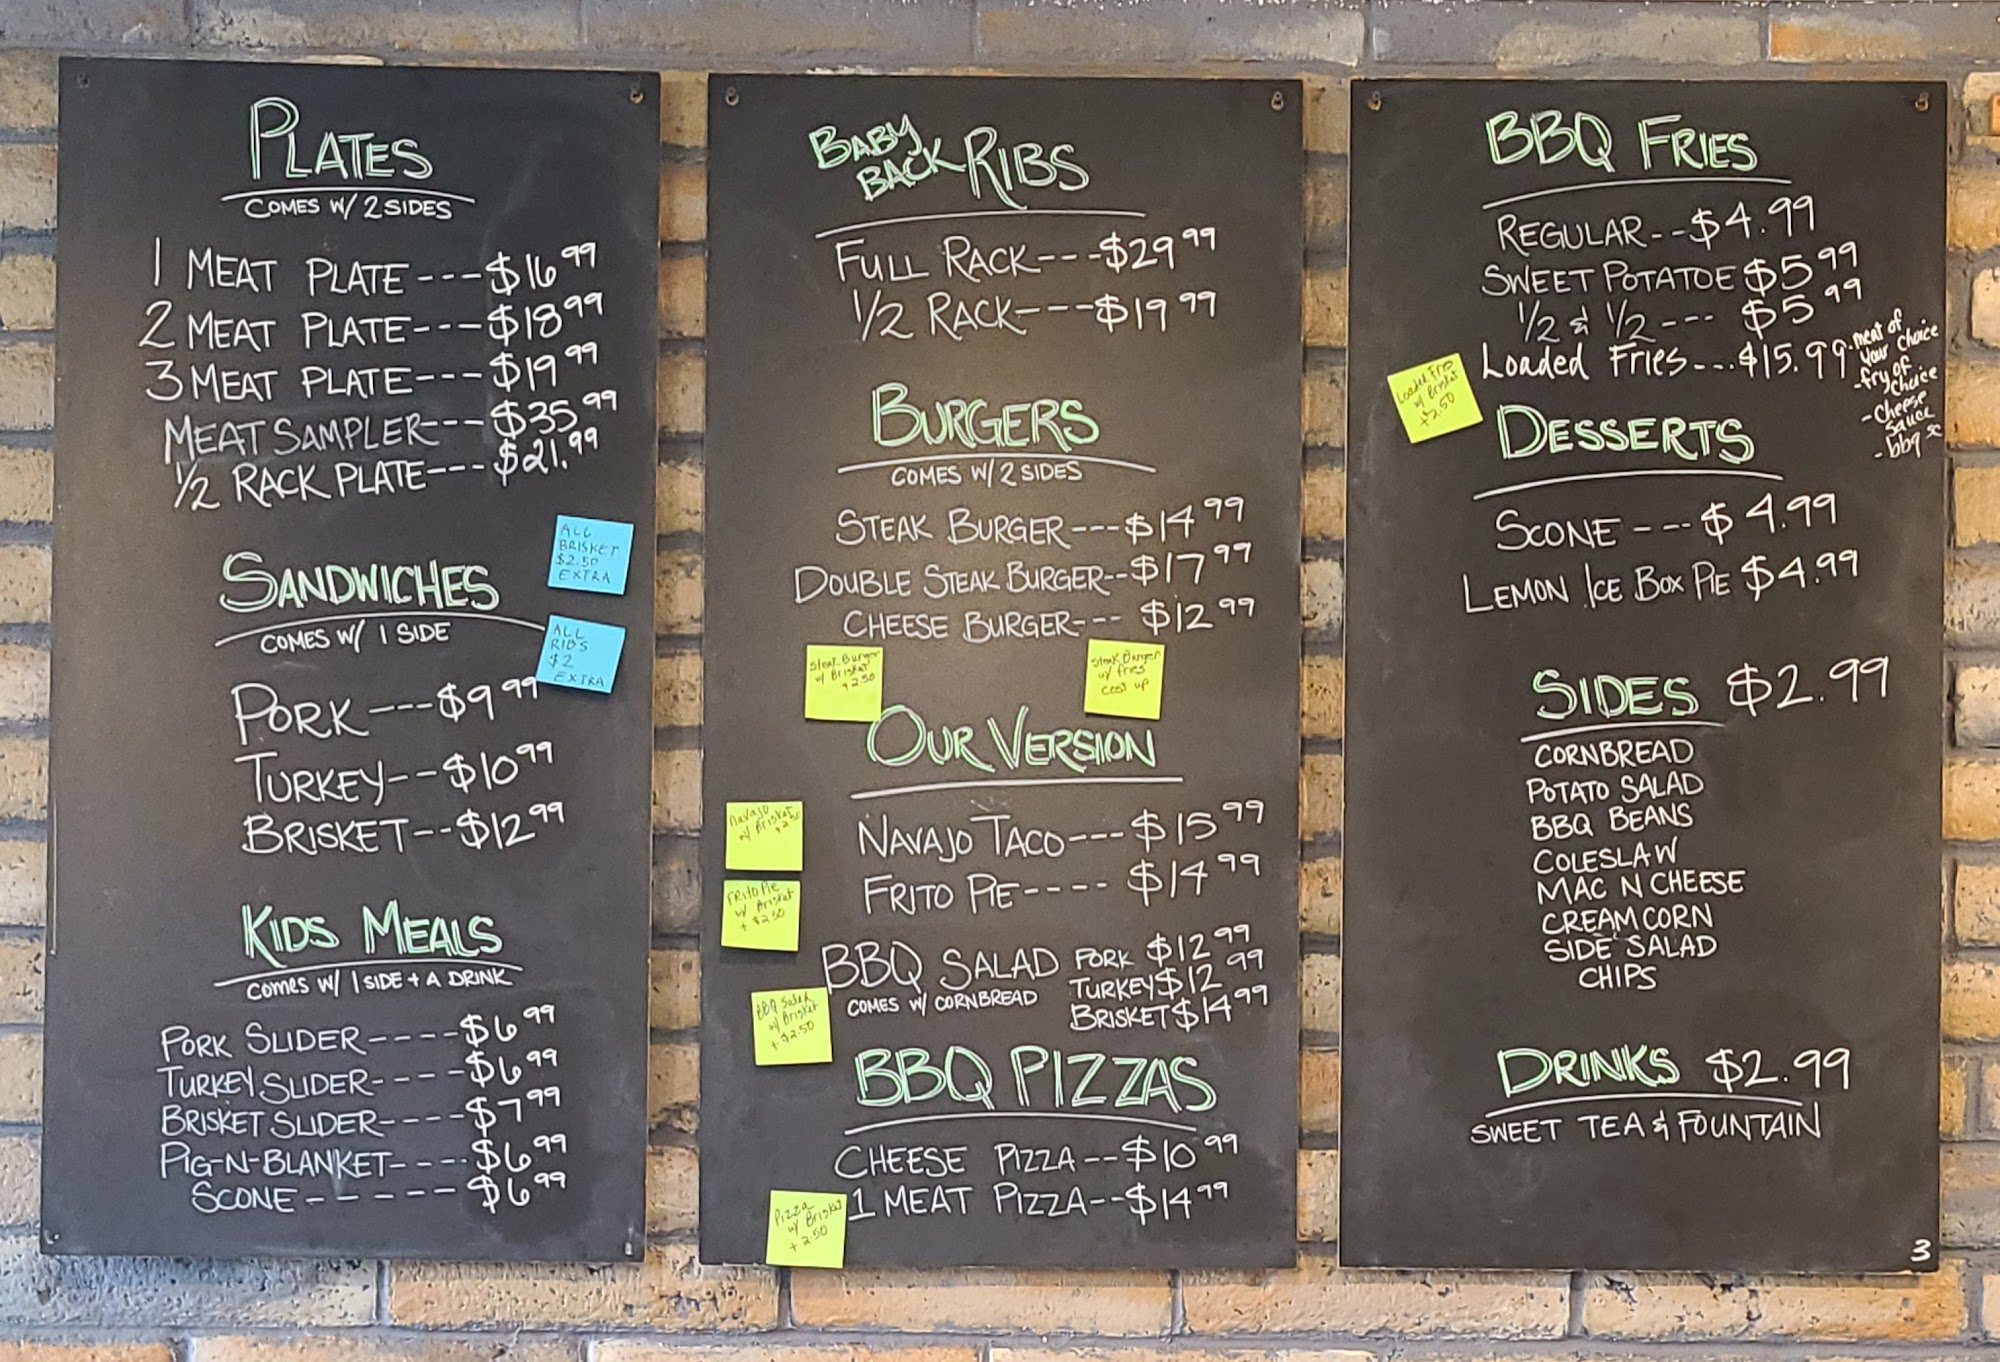 PLATES
COMES W/ 2 SIDES
1 MEAT PLATE---$16.99
2 MEAT PLATE---$18.99
3 MEAT PLATE---$19.99
MEAT SAMPLER---$35.99
1/2 RACK PLATE---$21.99
ALL
BRISKET
$2.50
EXTRA
SANDWICHES
COMES W/ 1 SIDE
ALL
RIBS
$2
EXTRA
PORK---$9.99
TURKEY--$10.99
BRISKET--$12.99
KIDS MEALS
COMES W/ 1 SIDE + A DRINK
PORK SLIDER----$6.99
TURKEY SLIDER----$6.99
BRISKET SLIDER----$7.99
PIG-N-BLANKET----$6.99
SCONE-----$6.99
BABY
BACK RIBS
FULL RACK---$29.99
1/2 RACK---$19.99
BURGERS
COMES W/ 2 SIDES
STEAK BURGER---$14.99
DOUBLE STEAK BURGER--$17.99
CHEESE BURGER---$12.99
Steak Burger
w/ Brisket
+2.50
Steak Burger
w/ fries
cost up
OUR VERSION
Navajo
w/ Brisket
+2.50
NAVAJO TACO---$15.99
FRITO PIE----$14.99
FRito Pie
w/ Brisket
+$2.50
BBQ SALAD
COMES W/ CORNBREAD
PORK $12.99
TURKEY $12.99
BRISKET $14.99
BBQ Salad
w/ Brisket
+$2.50
BBQ PIZZAS
CHEESE PIZZA--$10.99
1 MEAT PIZZA--$14.99
Pizza
w/ Brisket
+2.50
BBQ FRIES
REGULAR--$4.99
SWEET POTATOE $5.99
1/2 & 1/2---$5.99
Loaded Fries...$15.99
-meat of
your choice
-fry of
choice
-cheese
sauce
-bbq sc
Loaded Fries
w/ Brisket
+2.50
DESSERTS
SCONE---$4.99
LEMON ICE BOX PIE $4.99
SIDES $2.99
CORNBREAD
POTATO SALAD
BBQ BEANS
COLESLAW
MAC N CHEESE
CREAM CORN
SIDE SALAD
CHIPS
DRINKS $2.99
SWEET TEA & FOUNTAIN
3